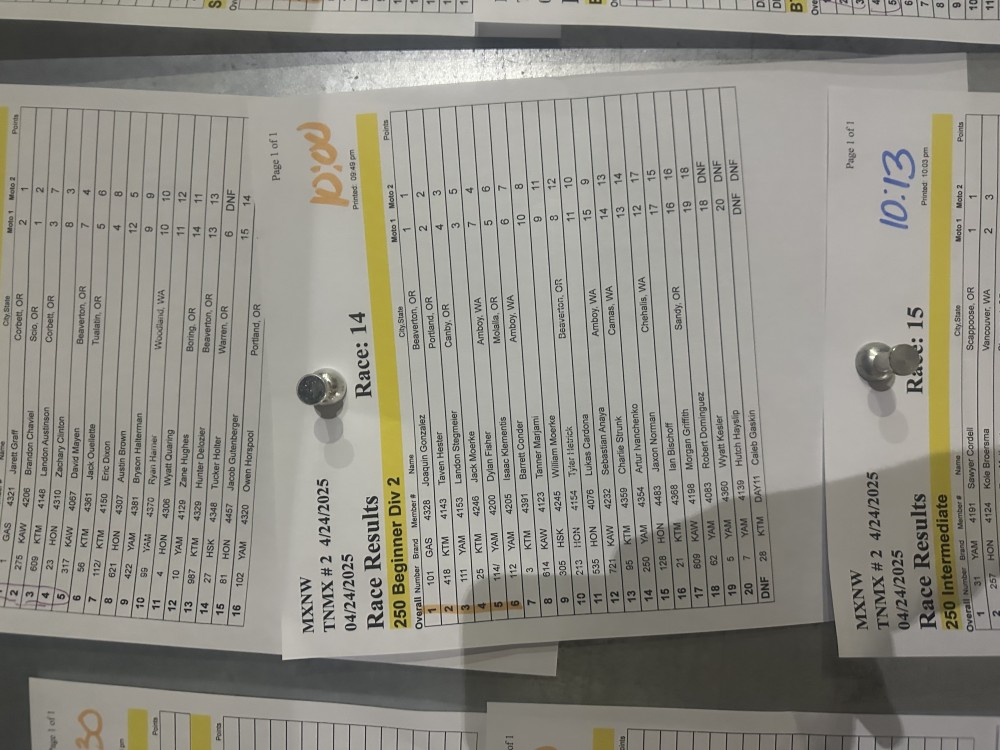 City,State Moto 1 Moto 2 Points
1 GAS 4321 Jarett Graff Corbett, OR 2 1
2 275 KAW 4206 Brandon Chaviel Scio, OR 1 2
3 609 KTM 4148 Landon Austinson Corbett, OR 3 7
4 23 HON 4310 Zachary Clinton 8 3
5 317 KAW 4067 David Mayen Beaverton, OR 7 4
6 56 KTM 4361 Jack Ouellette Tualatin, OR 5 6
7 112/ KTM 4150 Eric Dixon 4 8
8 621 HON 4307 Austin Brown 12 5
9 422 YAM 4381 Bryson Halterman 9 9
10 99 YAM 4370 Ryan Hanner Woodland, WA 10 10
11 4 HON 4306 Wyatt Quiring 11 12
12 10 YAM 4129 Zane Hughes Boring, OR 14 11
13 987 KTM 4329 Hunter Delozier Beaverton, OR 13 13
14 27 HSK 4348 Tucker Holter Warren, OR 6 DNF
15 81 HON 4457 Jacob Gutenberger 15 14
16 102 YAM 4320 Owen Horspool Portland, OR
Page 1 of 1
MXNW
TNMX # 2 4/24/2025
04/24/2025
10:00
Printed: 09:49 pm
Race Results Race: 14
250 Beginner Div 2
Overall Number Brand Member # Name City,State Moto 1 Moto 2 Points
1 101 GAS 4328 Joaquin Gonzalez Beaverton, OR 1 1
2 418 KTM 4143 Taven Hester Portland, OR 2 2
3 111 YAM 4153 Landon Stegmeier Canby, OR 4 3
4 25 KTM 4246 Jack Moerke 3 5
5 114/ YAM 4200 Dylan Faher Amboy, WA 7 4
6 112 YAM 4205 Isaac Klementis Molalla, OR 5 6
7 3 KTM 4391 Barrett Conder Amboy, WA 6 7
8 614 KAW 4123 Tanner Marjami 10 8
9 305 HSK 4245 William Moerke 9 11
10 213 HON 4154 Tyler Hetrick Beaverton, OR 8 12
11 535 HON 4076 Lukas Cardona 11 10
12 721 KAW 4232 Sebastian Anaya Amboy, WA 15 9
13 95 KTM 4359 Charlie Strunk Camas, WA 14 13
14 250 YAM 4354 Artur Ivanchenko 13 14
15 128 HON 4483 Jaxon Norman Chehalis, WA 12 17
16 21 KTM 4368 Ian Bischoff 17 15
17 809 KAW 4198 Morgan Griffith Sandy, OR 16 16
18 62 YAM 4083 Robert Dominguez 19 18
19 5 YAM 4360 Wyatt Kesler 18 DNF
20 7 YAM 4139 Hutch Hayslip 20 DNF
DNF 28 KTM DAY11 Caleb Gaskin DNF DNF
Page 1 of 1
MXNW
TNMX # 2 4/24/2025
04/24/2025
10:13
Printed: 10:03 pm
Race Results Race: 15
250 Intermediate
Overall Number Brand Member # Name City,State Moto 1 Moto 2 Points
1 31 YAM 4191 Sawyer Cordell Scappoose, OR 1 1
2 257 HON 4124 Kole Broersma Vancouver, WA 2 3
30
Page 1 of 1
Points
of 1